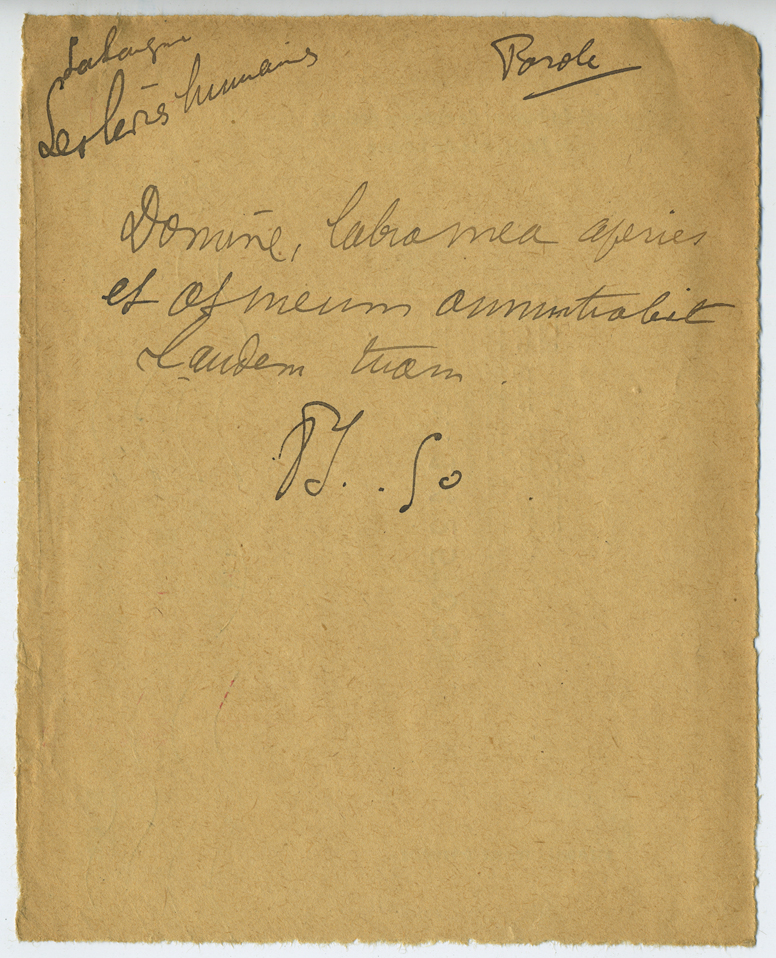 La langue
Les lèvres humaines
Parole
Domine, labra mea aperies
et os meum annuntiabit
laudem tuam.
Ps. . 50